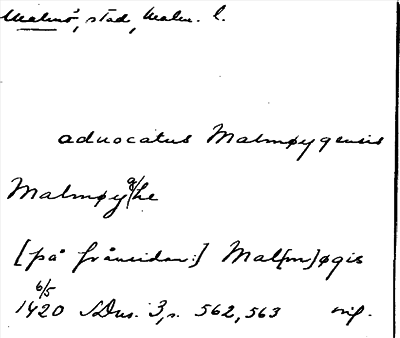 Malmö, stad, Malm. l.
advocatus Malmøygensis
Malmøyghe
[på frånsidan:] Mal[m]øgis
6/5
1420 SDns. 3, s. 562, 563 orig.